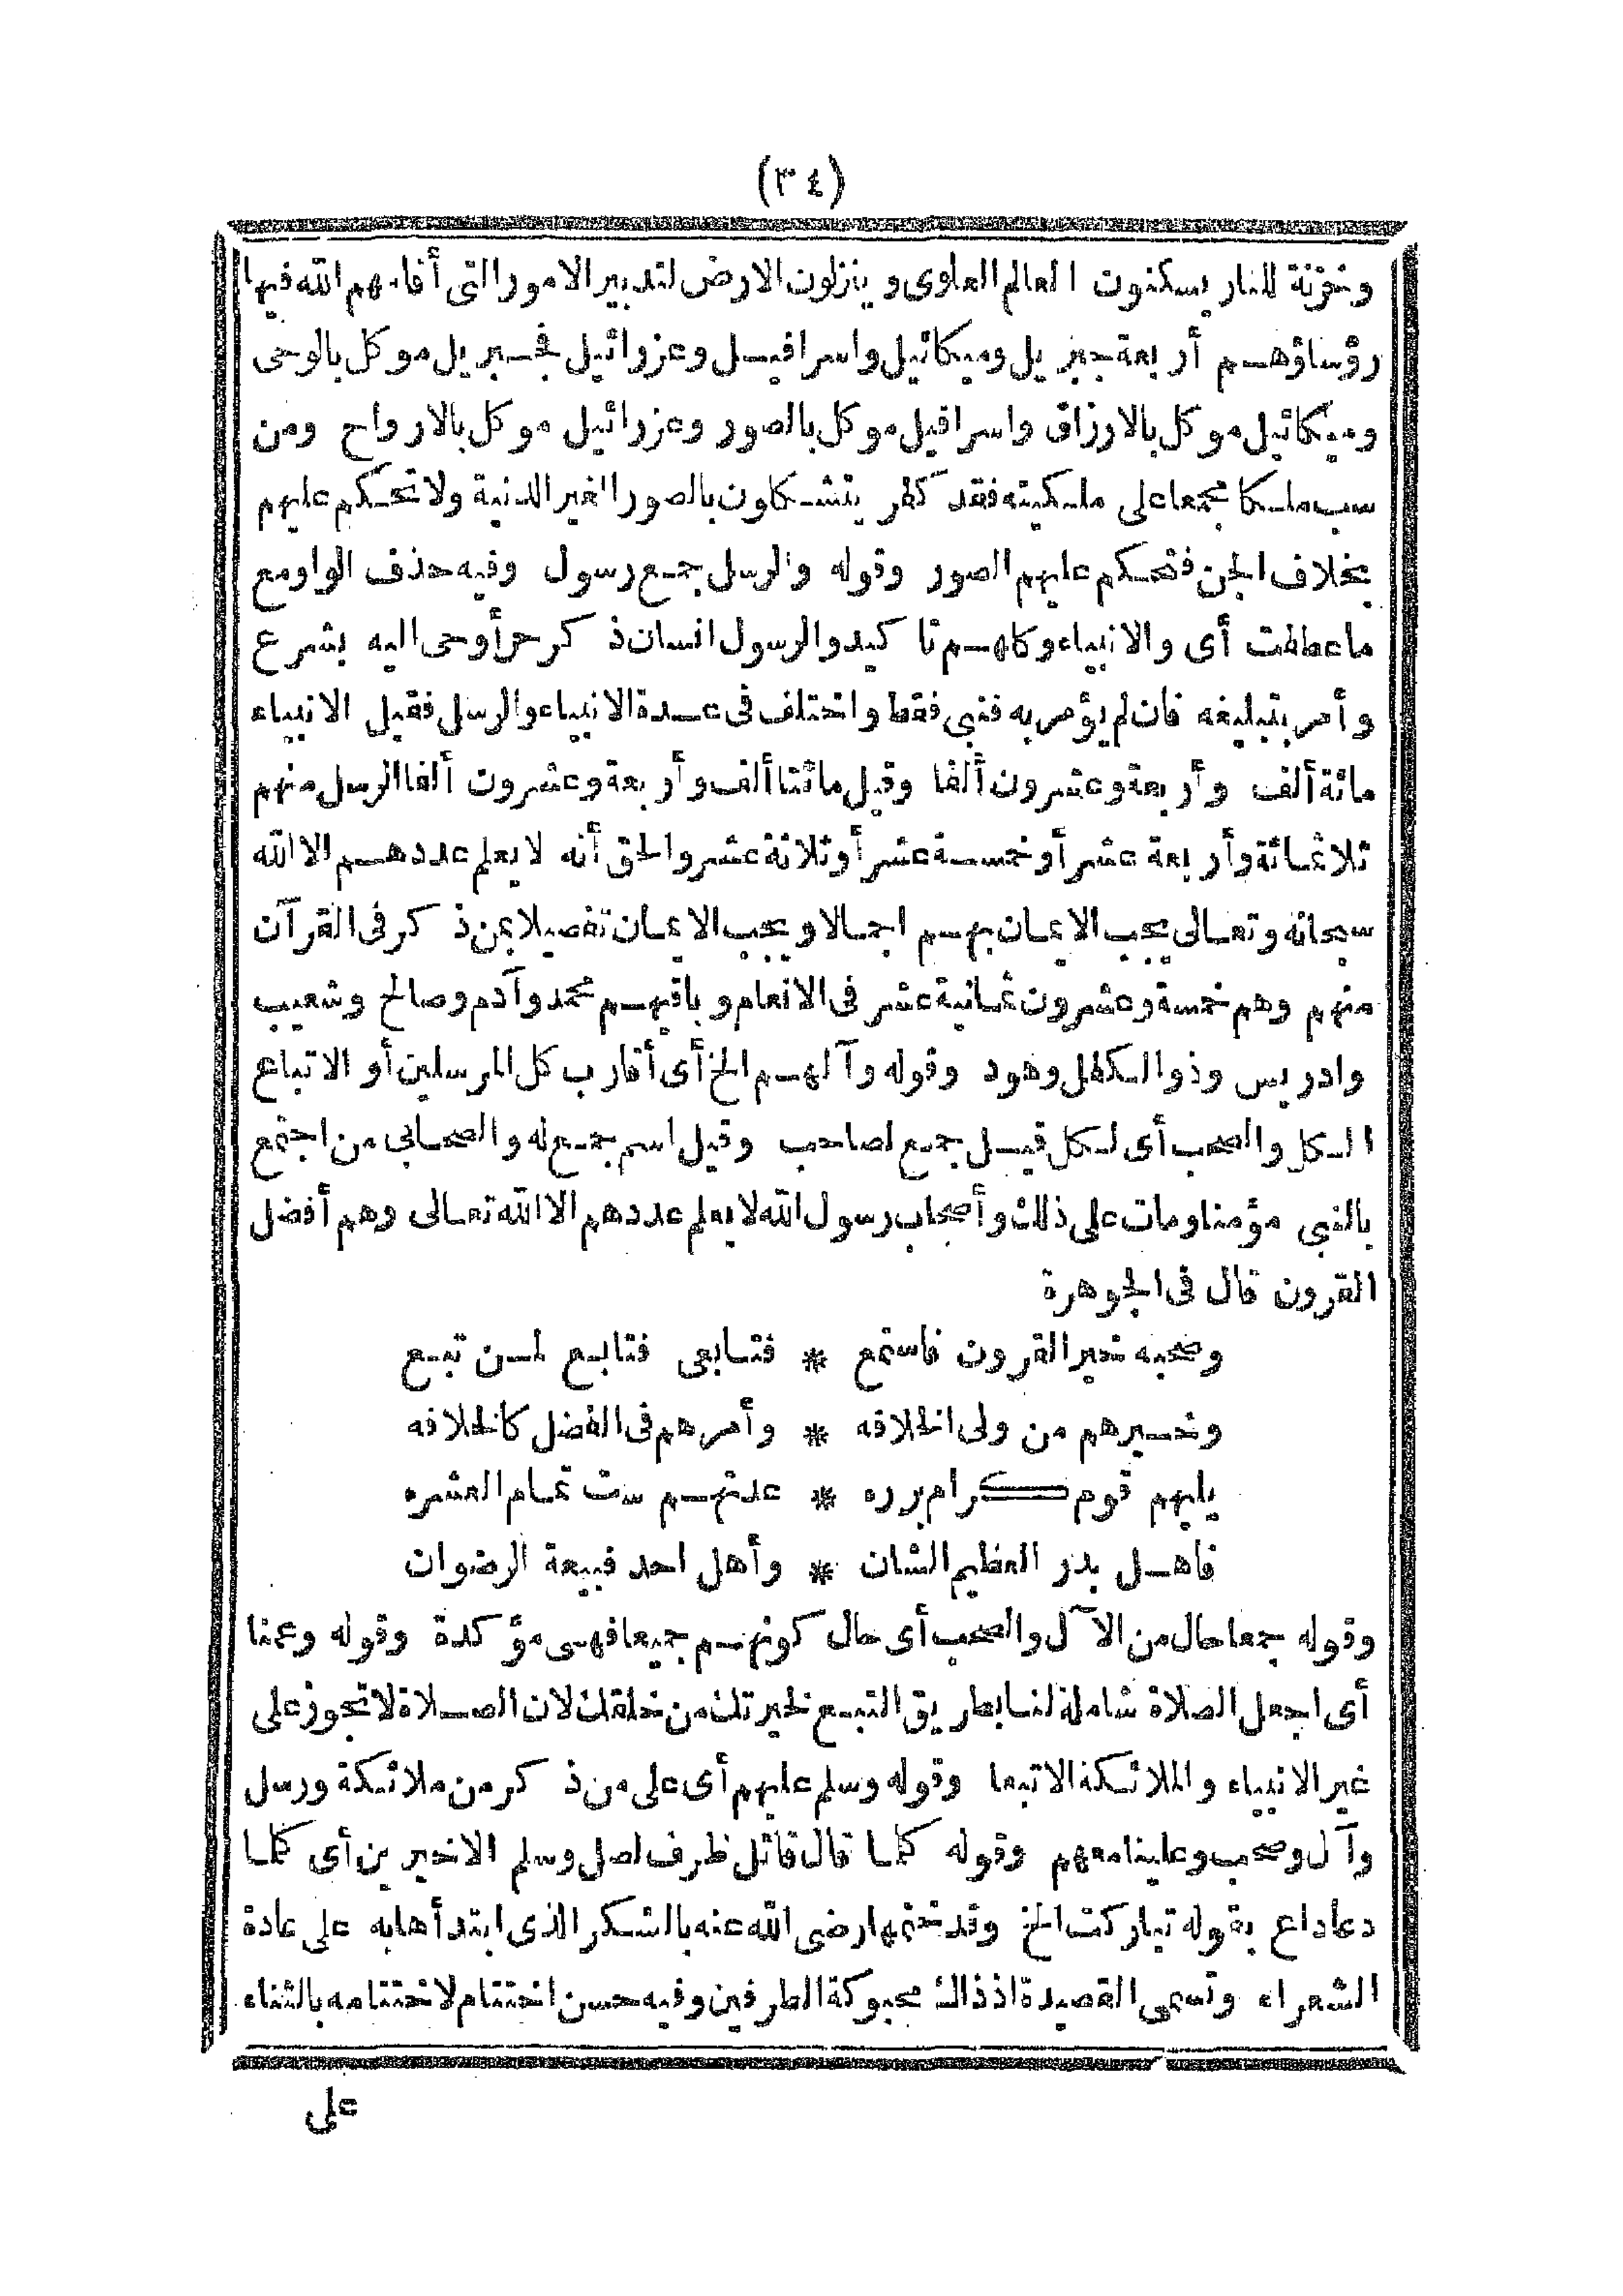 (٣٤)
وخزنة للنار يسكنون العالم العلوى وينزلون الارض لتدبير الامور التى أقامهم الله فيها
رؤساؤهم أربعة جبريل وميكائيل واسرافيل وعزرائيل فجبريل موكل بالوحى
وميكائيل موكل بالارزاق واسرافيل موكل بالصور وعزرائيل موكل بالارواح ومن
سب ملكا مجمعا على ملكيته فقد كفر يتشكلون بالصور الغير الدنية ولا تحكم عليهم
بخلاف الجن فتحكم عليهم الصور وقوله والرسل جمع رسول وفيه حذف الواو مع
ما عطفت أى والانبياء وكلهم تأكيد والرسول انسان ذكر حر أوحى اليه بشرع
وأمر بتبليغه فان لم يؤمر به فنبى فقط واختلف فى عدة الانبياء والرسل فقيل الانبياء
مائة ألف وأربعة وعشرون ألفا وقيل مائتا ألف وأربعة وعشرون ألفا الرسل منهم
ثلاثمائة وأربعة عشر أو خمسة عشر أو ثلاثة عشر والحق أنه لا يعلم عددهم الا الله
سبحانه وتعالى يجب الايمان بهم اجمالا ويجب الايمان تفصيلا بمن ذكر فى القرآن
منهم وهم خمسة وعشرون ثمانية عشر فى الانعام وباقيهم محمد وآدم وصالح وشعيب
وادريس وذو الكفل وهود وقوله وآلهم الخ أى أقارب كل المرسلين أو الاتباع
الكل والصحب أى لكل قيل جمع لصاحب وقيل اسم جمع له والصحابى من اجتمع
بالنبى مؤمنا ومات على ذلك وأصحاب رسول الله لا يعلم عددهم الا الله تعالى وهم أفضل
القرون قال فى الجوهرة
وصحبه خير القرون فاستمع * فتابعى فتابع لمن تبع
وخيرهم من ولى الخلافه * وأمرهم فى الفضل كالخلافه
يليهم قوم كرام برره * عدتهم ست تمام العشره
فاهل بدر العظيم الشان * وأهل احد فبيعة الرضوان
وقوله جمعا حال من الآل والصحب أى حال كونهم جميعا فهى مؤكدة وقوله وعمنا
أى اجعل الصلاة شاملة لنا بطريق التبع لخيرتك من خلقك لان الصلاة لا تجوز على
غير الانبياء والملائكة الا تبعا وقوله وسلم عليهم أى على من ذكر من ملائكة ورسل
وآل وصحب وعلينا معهم وقوله كلما قال قائل ظرف لصل وسلم الاخيرين أى كلما
دعا داع بقوله تباركت الخ وقد ختمها رضى الله عنه بالشكر الذى ابتدأها به على عادة
الشعراء وتسمى القصيدة اذ ذاك محبوكة الطرفين وفيه حسن اختتام لاختتامه بالثناء
على